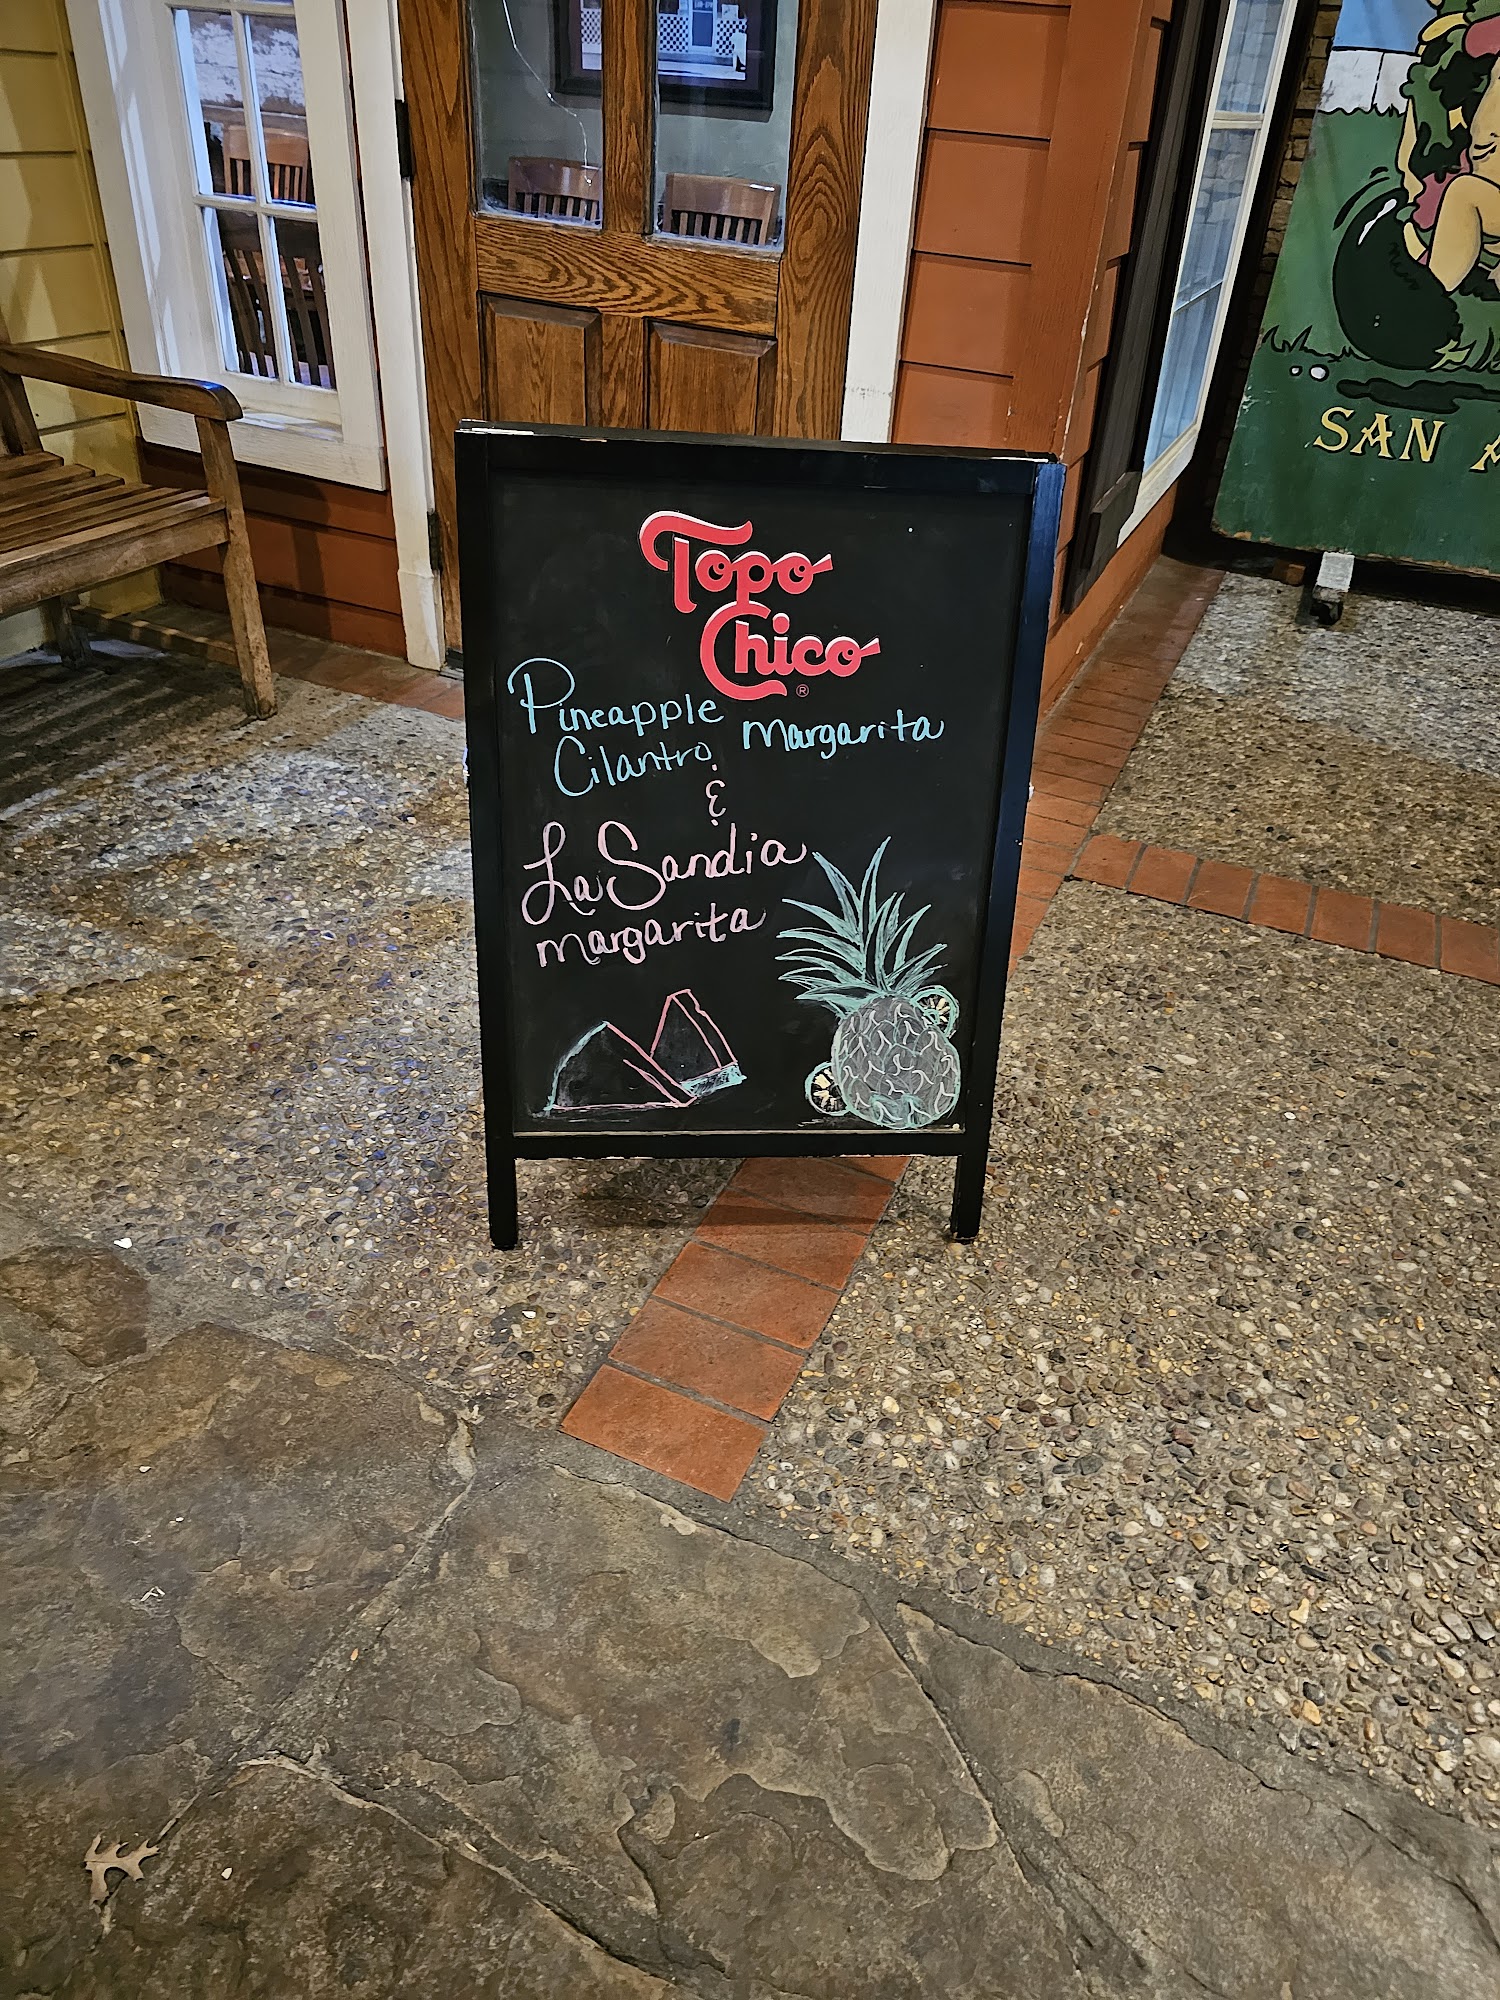 Topo
Chico
®
Pineapple
Cilantro margarita
&
La Sandia
margarita
SAN